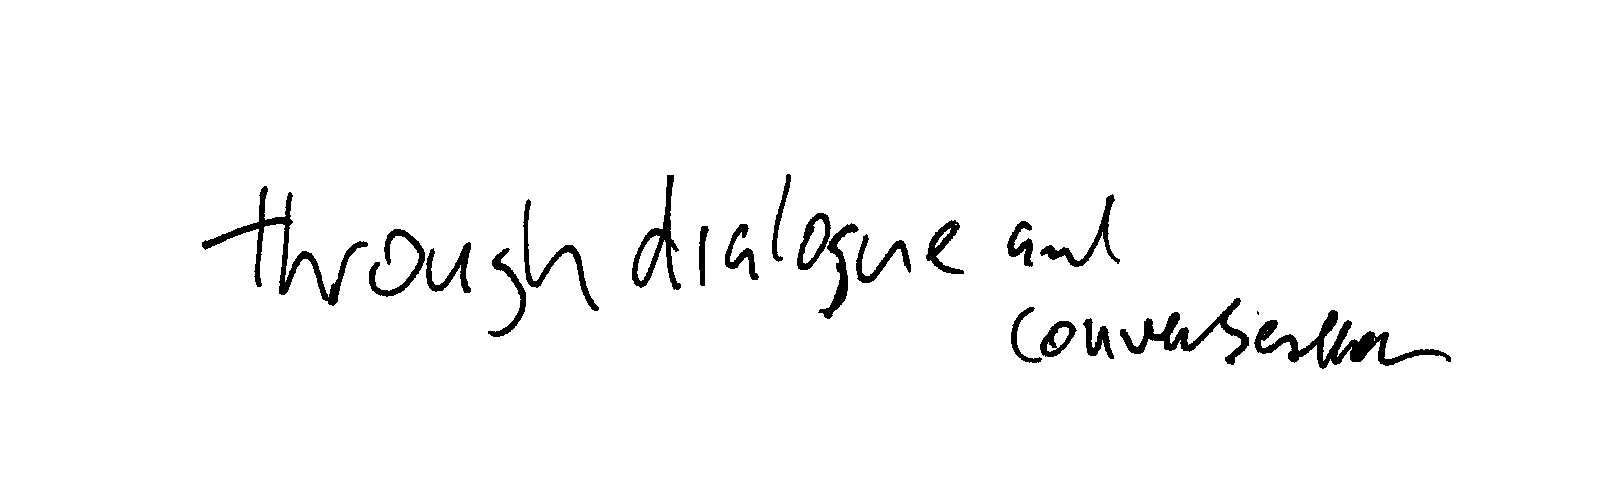 through dialogue and
conversation